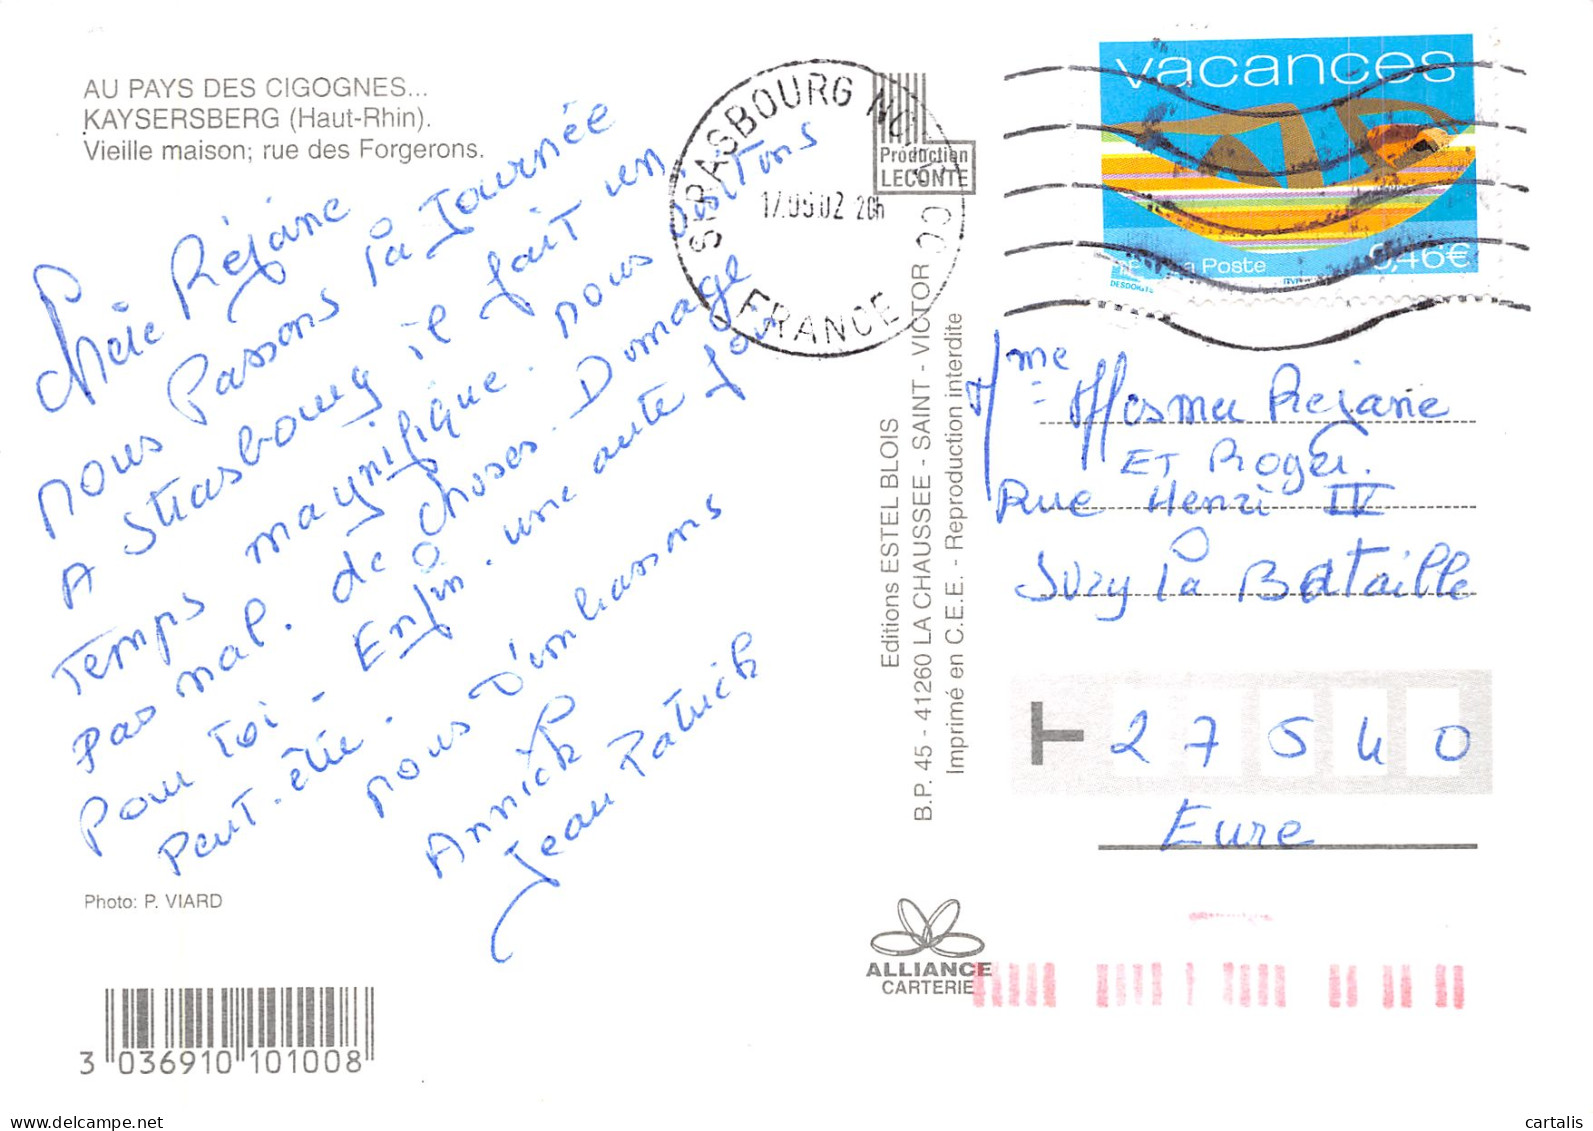 AU PAYS DES CIGOGNES...
KAYSERSBERG (Haut-Rhin).
Vieille maison; rue des Forgerons.
Chère Réjane
nous Passons la Tournée
A Strasbourg il fait un
Temps magnifique. nous visitons
pas mal. de choses. Domage
Pour toi - Enfin. une autre fois
Peut-être.
nous t'embrassons
Annick
Jean Patrick
Photo: P. VIARD
3 036910 101008
STRASBOURG CC
17.06.02 20h
FRANCE
Production
LECONTE
Editions ESTEL BLOIS
B.P. 45 - 41260 LA CHAUSSEE - SAINT - VICTOR
Imprimé en C.E.E. - Reproduction interdite
ALLIANCE
CARTERIE
vacances
La Poste
0,46€
Mme Réjane
ET Roger.
Rue Henri IV
Ivry La Bataille
27540
Eure
cartalis